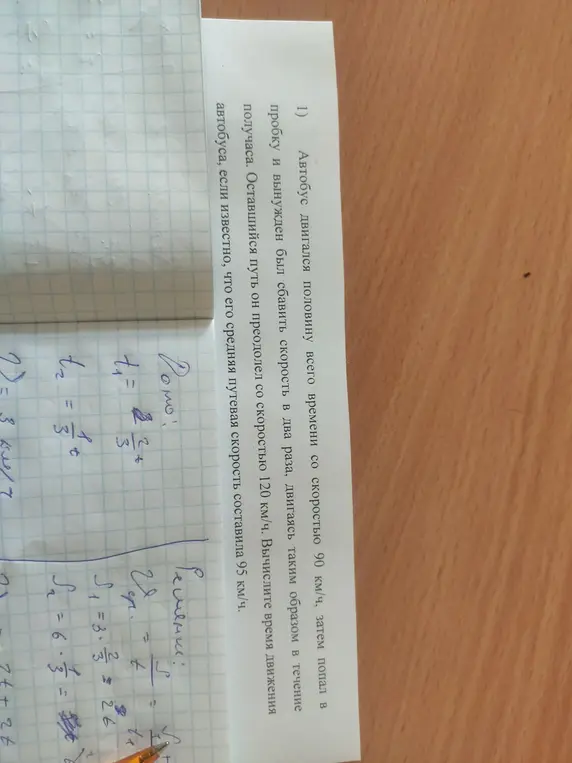 1) Автобус двигался половину всего времени со скоростью 90 км/ч, затем попал в
пробку и вынужден был сбавить скорость в два раза, двигаясь таким образом в течение
получаса. Оставшийся путь он преодолел со скоростью 120 км/ч. Вычислите время движения
автобуса, если известно, что его средняя путевая скорость составила 95 км/ч.
Дано:
t₁ = 2/3 t
t₂ = 1/3 t
Решение:
υср. = S/t =
S₁ = 3 · 2/3 = 2t
S₂ = 6 · 1/3 =